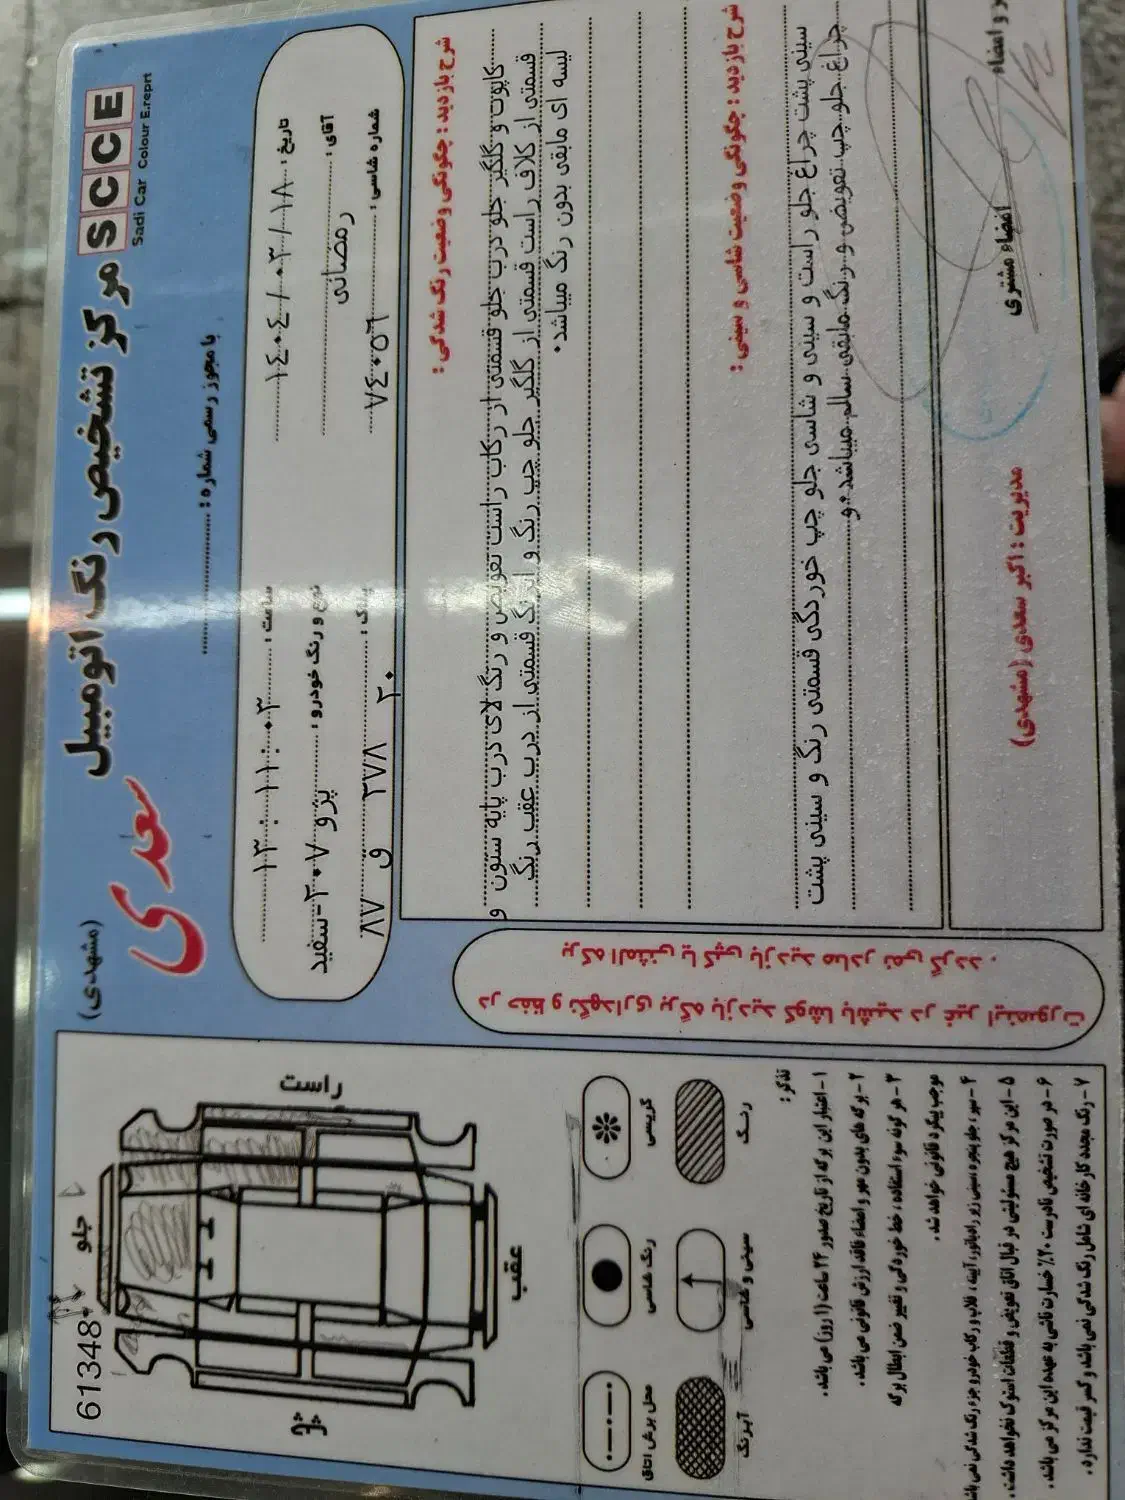 (مشهدی)
سعدی
مرکز تشخیص رنگ اتومبیل
SCCE
Sadi Car Colour E.reprt
با مجوز رسمی شماره :
تاریخ : ۱۴۰۴/۰۳/۱۸
ساعت : ۱۳:۱۱:۰۳
آقای : رمضانی
نوع و رنگ خودرو : پژو ۲۰۷-سفید
شماره شاسی : ۷۴۰۵۶
پلاک : ۸۷ ق ۳۷۸ ۲۰
شرح بازدید : چگونگی وضعیت رنگ شدگی :
کاپوت و گلگیر جلو درب جلو قسمتی از رکاب راست تعویض و رنگ لای درب پایه ستون و
قسمتی از کلاف راست قسمتی از گلگیر جلو چپ رنگ و لیسه قسمتی از درب عقب رنگ
لیسه ای مابقی بدون رنگ میباشد.
شرح بازدید : چگونگی وضعیت شاسی و سینی :
سینی پشت چراغ جلو راست و سینی و شاسی جلو چپ خوردگی قسمتی رنگ و سینی پشت
چراغ جلو چپ تعویض و رنگ مابقی سالم میباشد.و
مدیریت : اکبر سعدی (مشهدی)
امضاء مشتری
و امضاء
در حفظ و نگهداری برگه بازدید کوشا باشید در غیر اینصورت
برگه المثنی یا کپی بازدید صادر نمی گردد .
61348
جلو
راست
چپ
عقب
گریسی
رنگ شاسی
محل برش اتاق
رنگ
سینی و شاسی
آبرنگ
تذکر :
۱- اعتبار این برگه از تاریخ صدور ۲۴ ساعت (۱ روز) می باشد .
۲- برگه های بدون مهر و امضاء فاقد ارزش قانونی می باشد .
۳- هر گونه سوء استفاده ، خط خوردگی و تغییر ضمن ابطال برگه
موجب پیگرد قانونی خواهد شد .
۴- سپر ، جلو پنجره ، سینی زیر رادیاتور ، آیینه ، قالپاق و رکاب خودرو جزء رنگ شدگی نمی باشد
۵- این مرکز هیچ مسئولیتی در قبال اتاق تعویض و قطعات استوک نخواهد داشت .
۶- در صورت تشخیص نادرست ۲۰٪ خسارت ناشی به عهده این مرکز می باشد .
۷- رنگ مجدد کارخانه ای شامل رنگ شدگی نمی باشد و کسر قیمت ندارد .